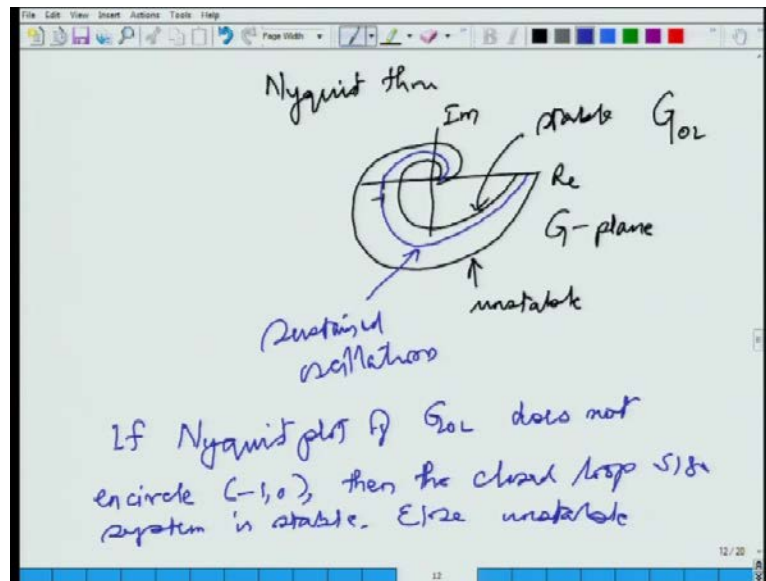 File Edit View Insert Actions Tools Help
Page Width
Nyquist thm
Im
stable GOL
Re
G-plane
unstable
sustained
oscillations
If Nyquist plot of GOL does not
encircle (-1,0), then the closed loop
system is stable. Else unstable
12/20
12